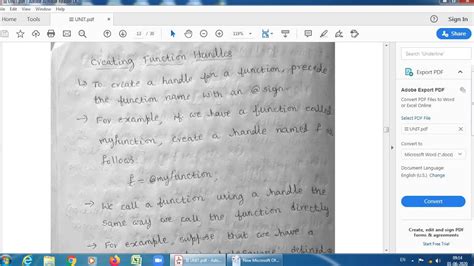 UNIT.pdf - Adobe Acrobat Reader DC
Tools
UNIT.pdf ×
Sign In
12 /
Creating Function Handles
↳ To create a handle for a function, precede
the function name with an @ sign.
→ For example, if we have a function called
myfunction, create a handle named f as
follows
f = @myfunction;
→ We call a function using a handle the
same way we call the function directly
→ For example, suppose that we have a
defined
Export PDF
Adobe Export PDF
Convert PDF Files to Word
or Excel Online
Select PDF File
UNIT.pdf
Convert to
Microsoft Word (*.docx)
Document Language:
English (U.S.) Change
Convert
Create, edit and sign PDF
forms & agreements
Start Free Trial
UNIT.pdf - Adob...
New Microsoft Of...
EN
09:04